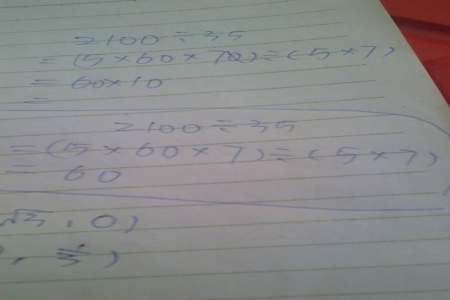 2100 ÷ 35
= (5 × 60 × 70) ÷ (5 × 7)
= 60 × 10
=
2100 ÷ 35
= (5 × 60 × 7) ÷ (5 × 7)
= 60
, 0)